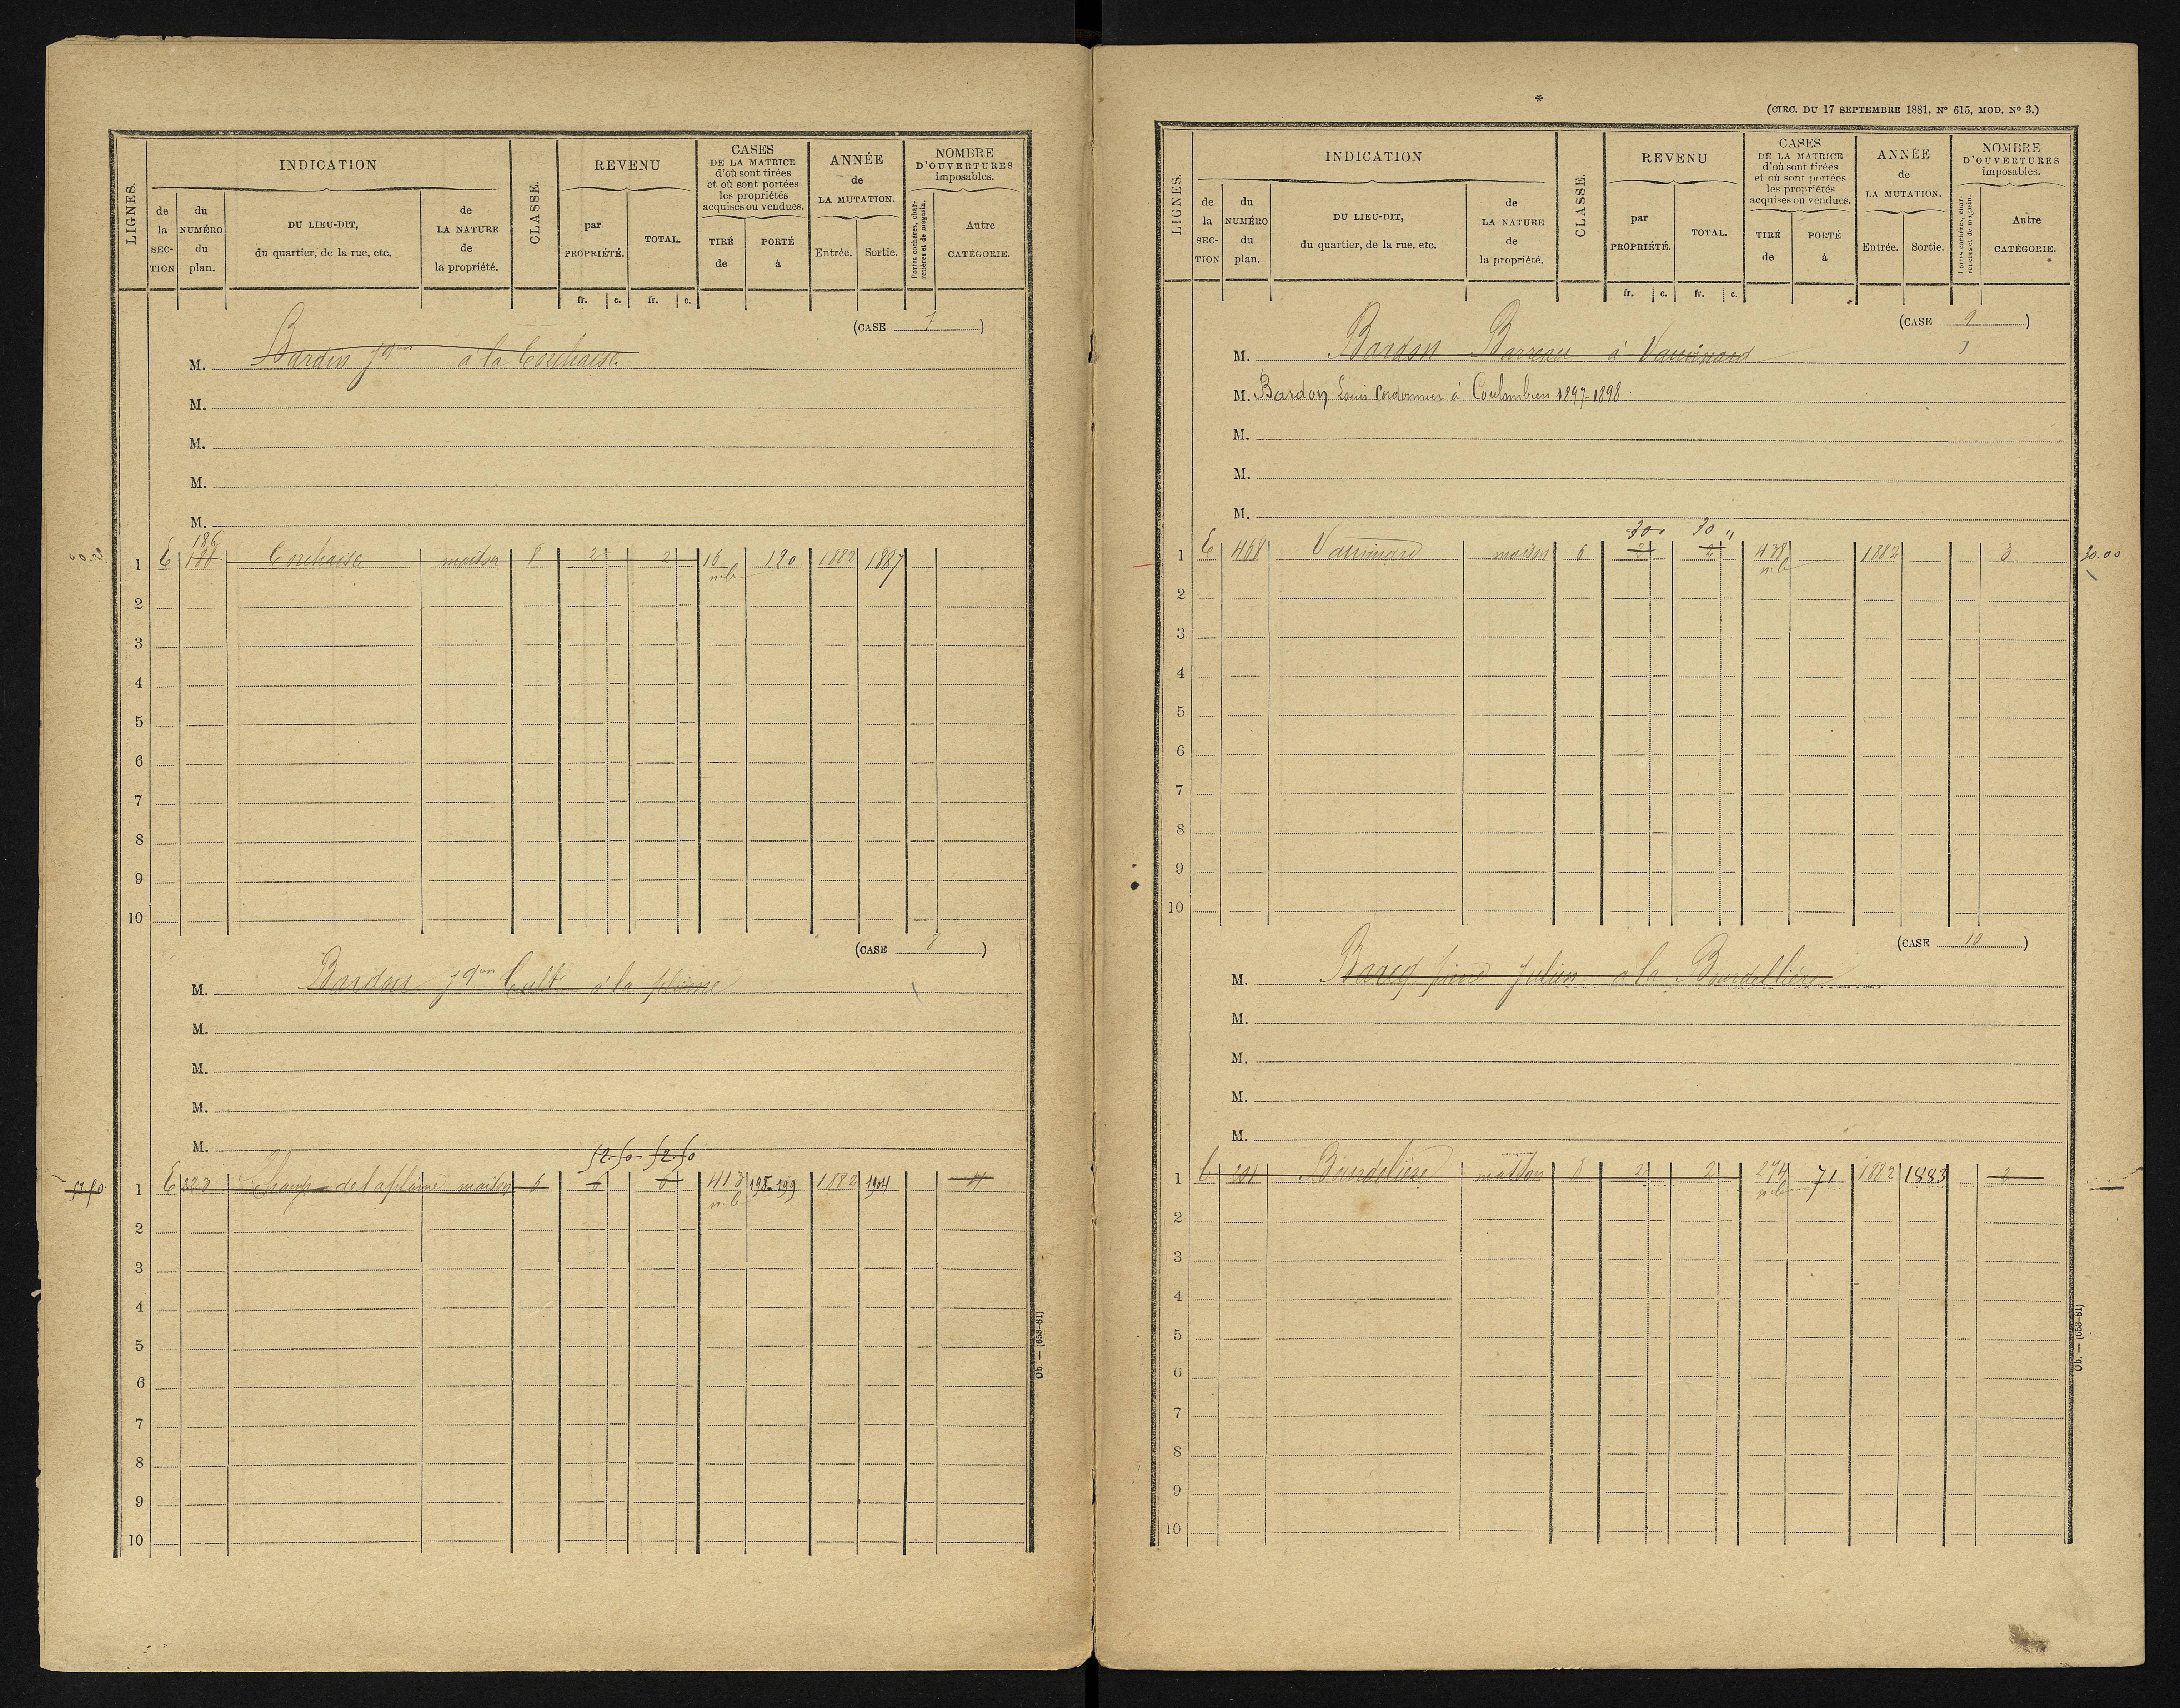 LIGNES.
INDICATION
de la SECTION
du NUMÉRO du plan.
DU LIEU-DIT, du quartier, de la rue, etc.
de LA NATURE de la propriété.
CLASSE.
REVENU
par PROPRIÉTÉ.
TOTAL.
CASES DE LA MATRICE d'où sont tirées et où sont portées les propriétés acquises ou vendues.
TIRÉ de
PORTÉ à
ANNÉE de LA MUTATION.
Entrée.
Sortie.
NOMBRE D'OUVERTURES imposables.
Portes cochères, charretières et de magasin.
Autre CATÉGORIE.
fr. c. fr. c.
(CASE 7)
M. Bardin Jques à la
M.
M.
M.
M.
186
1 E maison 8 2 2 16 190 1882 1887
m.b
2
3
4
5
6
7
8
9
10
(CASE 8)
M. Bardon Jques Cult à la plaine
M.
M.
M.
M.
52.50 52.50
52.50 1 E 223 Champ de la plaine maison 6 6 6 413 198-199 1882 1904 4
m.b
2
3
4
5
6
7
8
9
10
Ob. — (653-81)
*
(CIRC. DU 17 SEPTEMBRE 1881, Nº 615, MOD. Nº 3.)
LIGNES.
INDICATION
de la SECTION
du NUMÉRO du plan.
DU LIEU-DIT, du quartier, de la rue, etc.
de LA NATURE de la propriété.
CLASSE.
REVENU
par PROPRIÉTÉ.
TOTAL.
CASES DE LA MATRICE d'où sont tirées et où sont portées les propriétés acquises ou vendues.
TIRÉ de
PORTÉ à
ANNÉE de LA MUTATION.
Entrée.
Sortie.
NOMBRE D'OUVERTURES imposables.
Portes cochères, charretières et de magasin.
Autre CATÉGORIE.
fr. c. fr. c.
(CASE 9)
M. Bardon Barreau à Vauvinard
M. Bardon Louis Cordonnier à Coulombiers 1897-1898
M.
M.
M.
30 30 "
1 E 468 Vauvinard maison 6 2 2 438 1882 3 30.00
m.b
2
3
4
5
6
7
8
9
10
(CASE 10)
M. Barcq pierre Julien à la Bourdellière
M.
M.
M.
M.
1 C 201 Bourdelière maison 8 2 2 274 71 1882 1883 2
m.b
2
3
4
5
6
7
8
9
10
Ob. — (653-81)